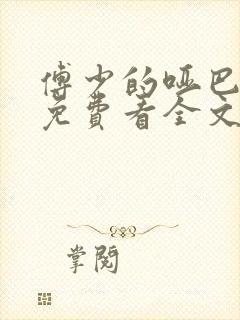 傅少的哑巴
免費看全文
掌閱